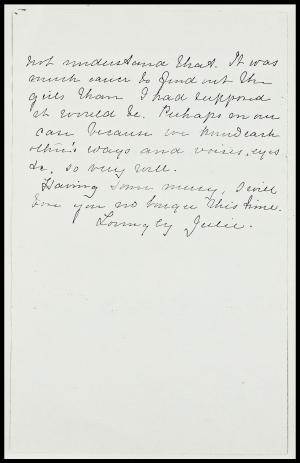 not understand that. It was
much easier to find out the
girls than I had supposed
it would be. Perhaps in our
case because we knew each
other's ways and voices, eyes
&c. so very well.
Having some mercy, I will
bore you no longer this time.
Lovingly Julie.